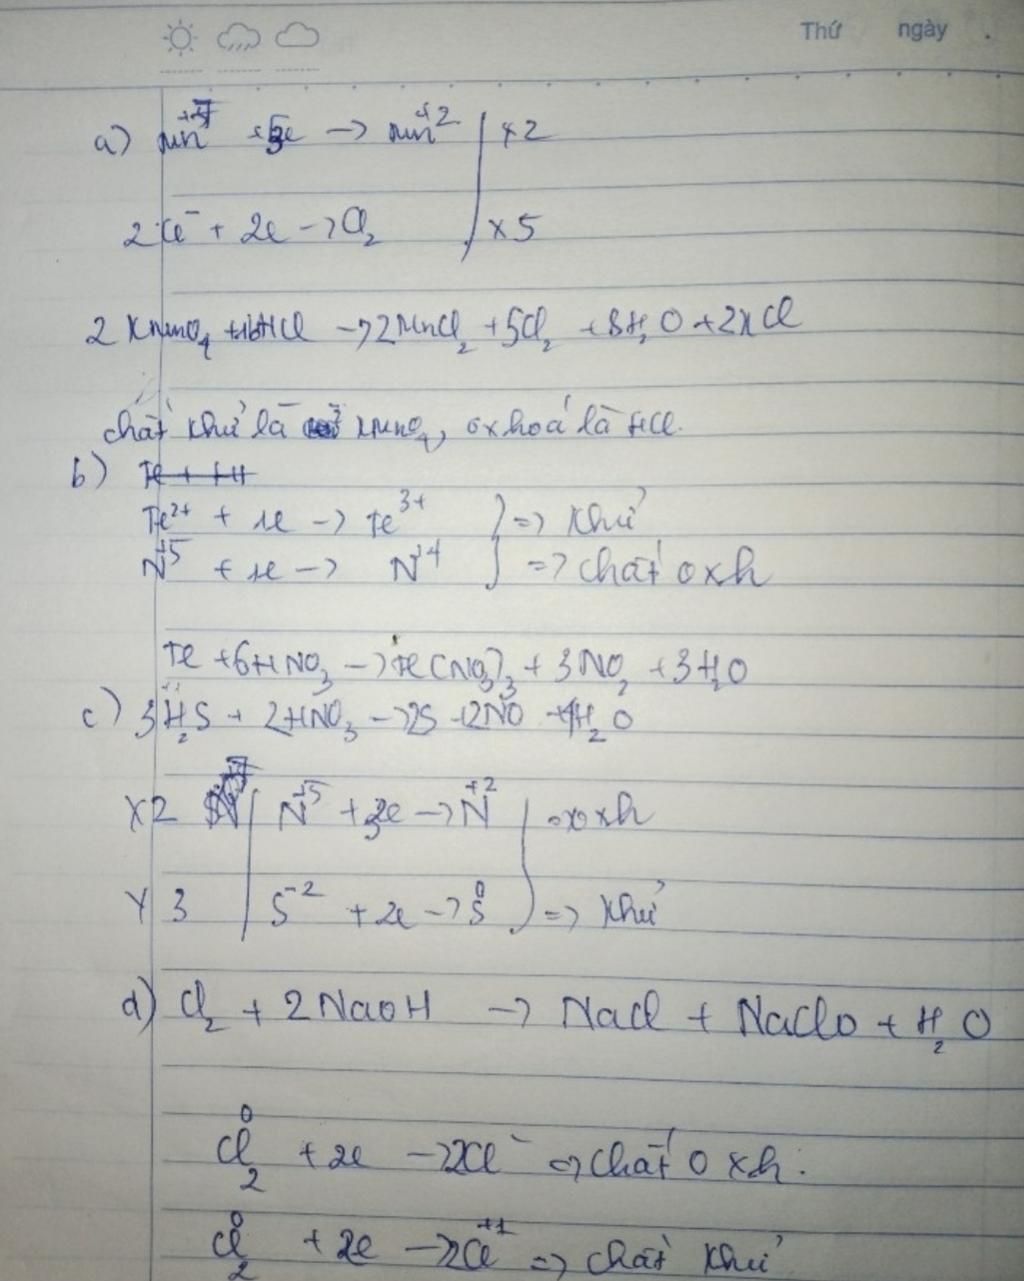 Thứ ngày .
a) Mn⁺⁷ +5e → Mn⁺² | x2
2Cl⁻ + 2e → Cl₂ | x5
2 KMnO₄ + 16HCl → 2MnCl₂ + 5Cl₂ + 8H₂O + 2KCl
chất khử là KMnO₄, oxhoá là HCl.
b) Fe + H
Fe²⁺ + 1e → Fe³⁺ } => khử
N⁺⁵ + 1e → N⁺⁴ } => chất oxh
Fe + 6HNO₃ → Fe(NO₃)₃ + 3NO₂ + 3H₂O
c) 3H₂S + 2HNO₃ → 3S + 2NO + 4H₂O
x2 | N⁺⁵ + 3e → N⁺² ) oxh
x 3 | S⁻² + 2e → S⁰ ) => khử
d) Cl₂ + 2NaOH → NaCl + NaClO + H₂O
Cl₂⁰ + 2e → 2Cl⁻ => chất oxh.
Cl₂⁰ + 2e → 2Cl⁺¹ => chất khử